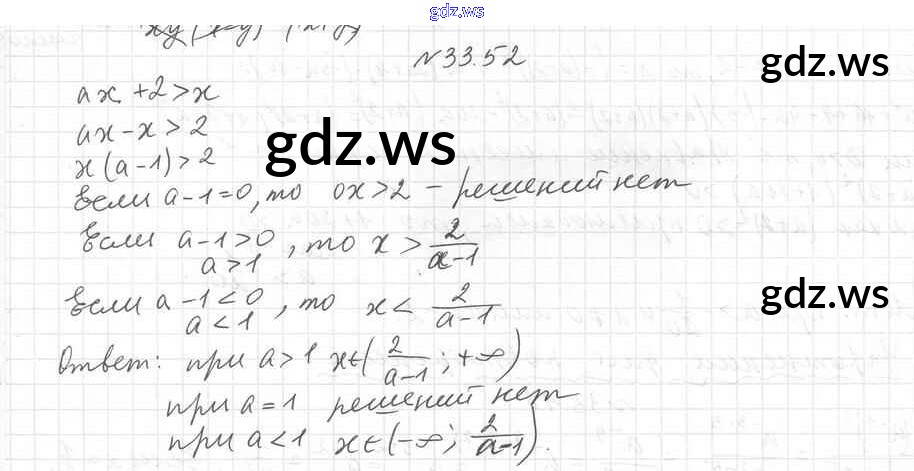 gdz.ws
№33.52
gdz.ws
ax+2>x
ax-x>2
gdz.ws
x(a-1)>2
Если a-1=0, то 0x>2 - решений нет
Если a-1>0, то x> 2/(a-1)
a>1
gdz.ws
Если a-1<0, то x< 2/(a-1)
a<1
Ответ: при a>1 x∈(2/(a-1); +∞)
при a=1 решений нет
при a<1 x∈(-∞; 2/(a-1)).